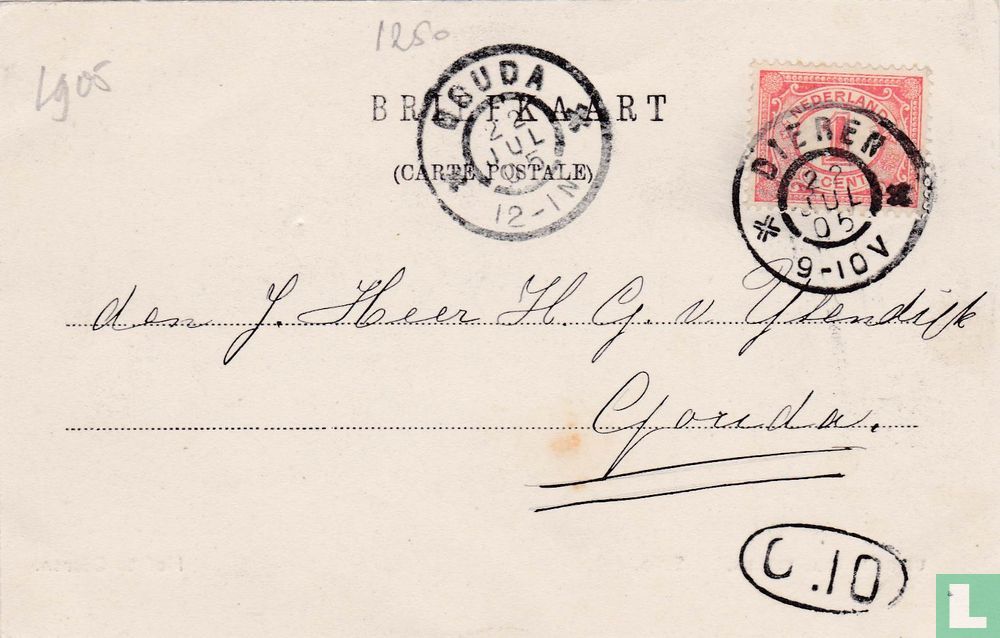 1250
1905
BRIEFKAART
(CARTE POSTALE)
GOUDA
22
JUL
05
12-1N
NEDERLAND
1
CENT
DIEREN
22
JUL
05
9-10V
den J. Heer H. G. v. IJsendijk
Gouda.
L